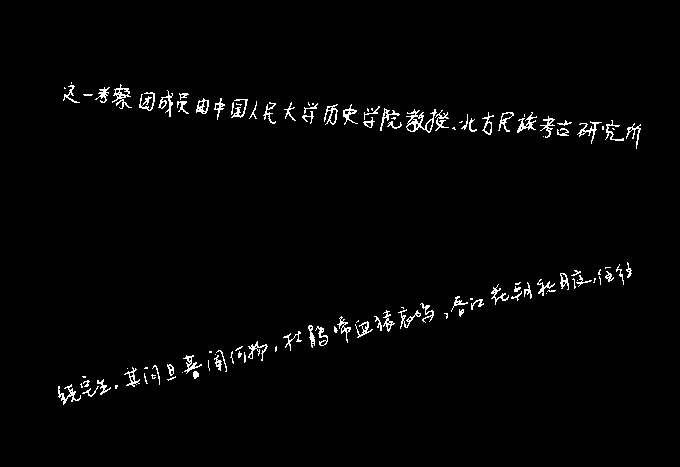 这一考察团成员由中国人民大学历史学院教授、北方民族考古研究所
绕宅生。其间旦暮闻何物,杜鹃啼血猿哀鸣,春江花朝秋月夜,往往